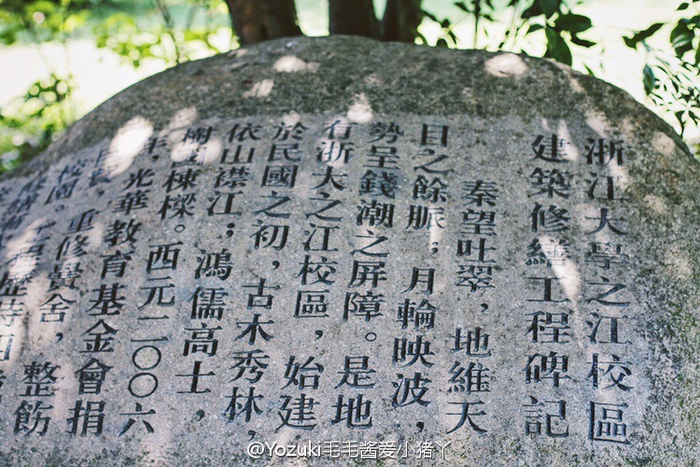 浙江大學之江校區
建築修繕工程碑記
秦望吐翠，地維天
目之餘脈；月輪映波，
勢呈錢潮之屏障。是地
有浙大之江校區，始建
於民國之初，古木秀林，
依山襟江；鴻儒高士，
國棟樑。西元二〇〇六
年，光華教育基金會捐
重修黌舍，整飭
校園。
@Yozuki毛毛酱爱小猪丫